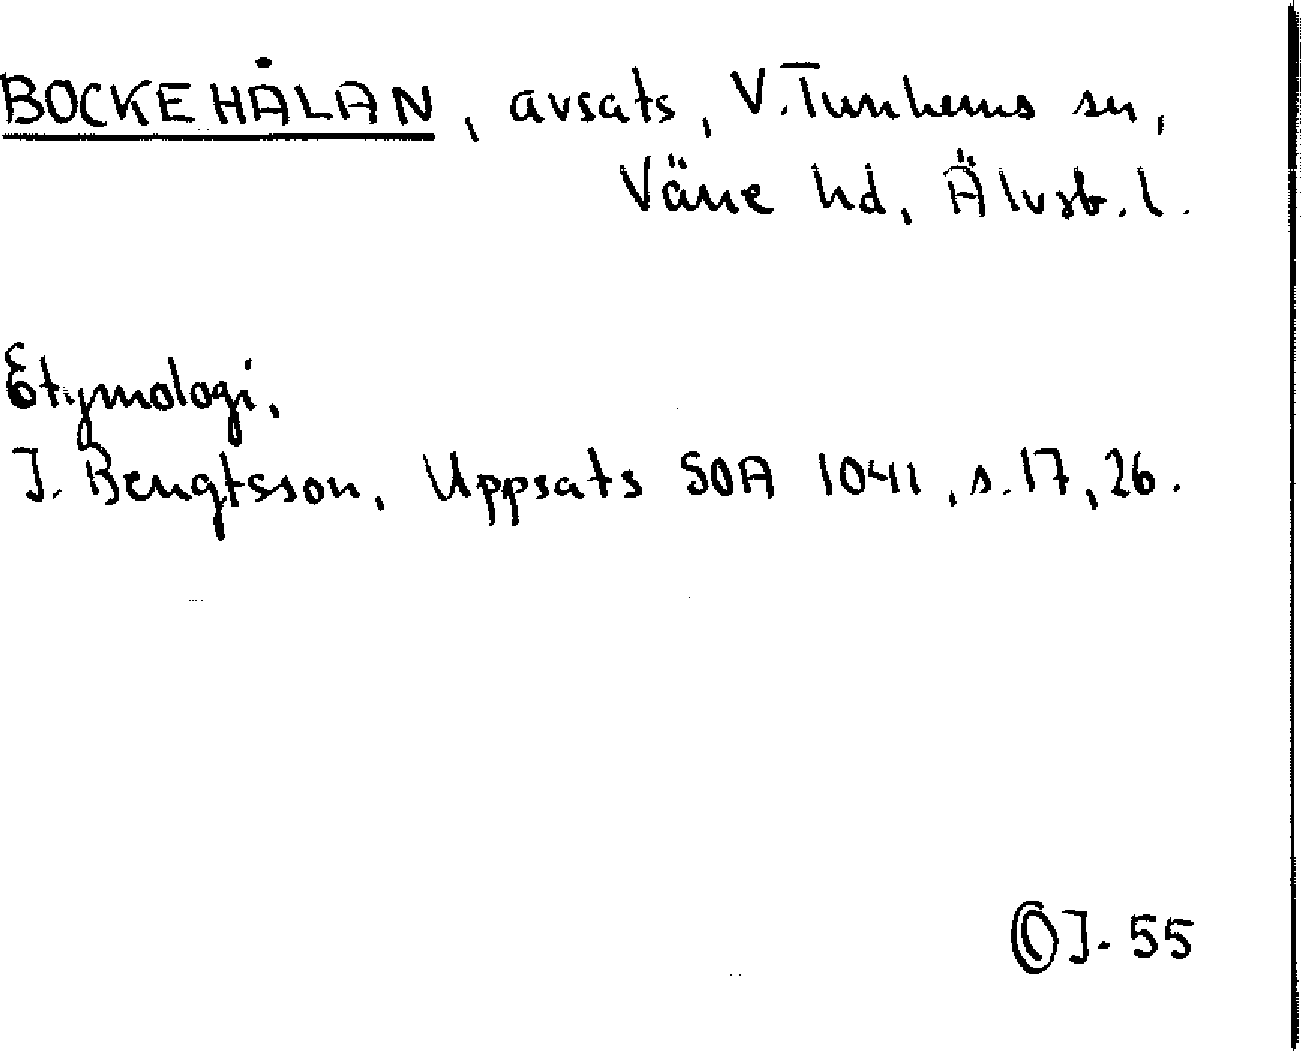 BOCKEHÅLAN, avsats, V. Tunhems sn,
Väne hd, Älvsb. l.
Etymologi.
I. Bengtsson, Uppsats SOA 1041, s. 17, 26.
OJ- 55